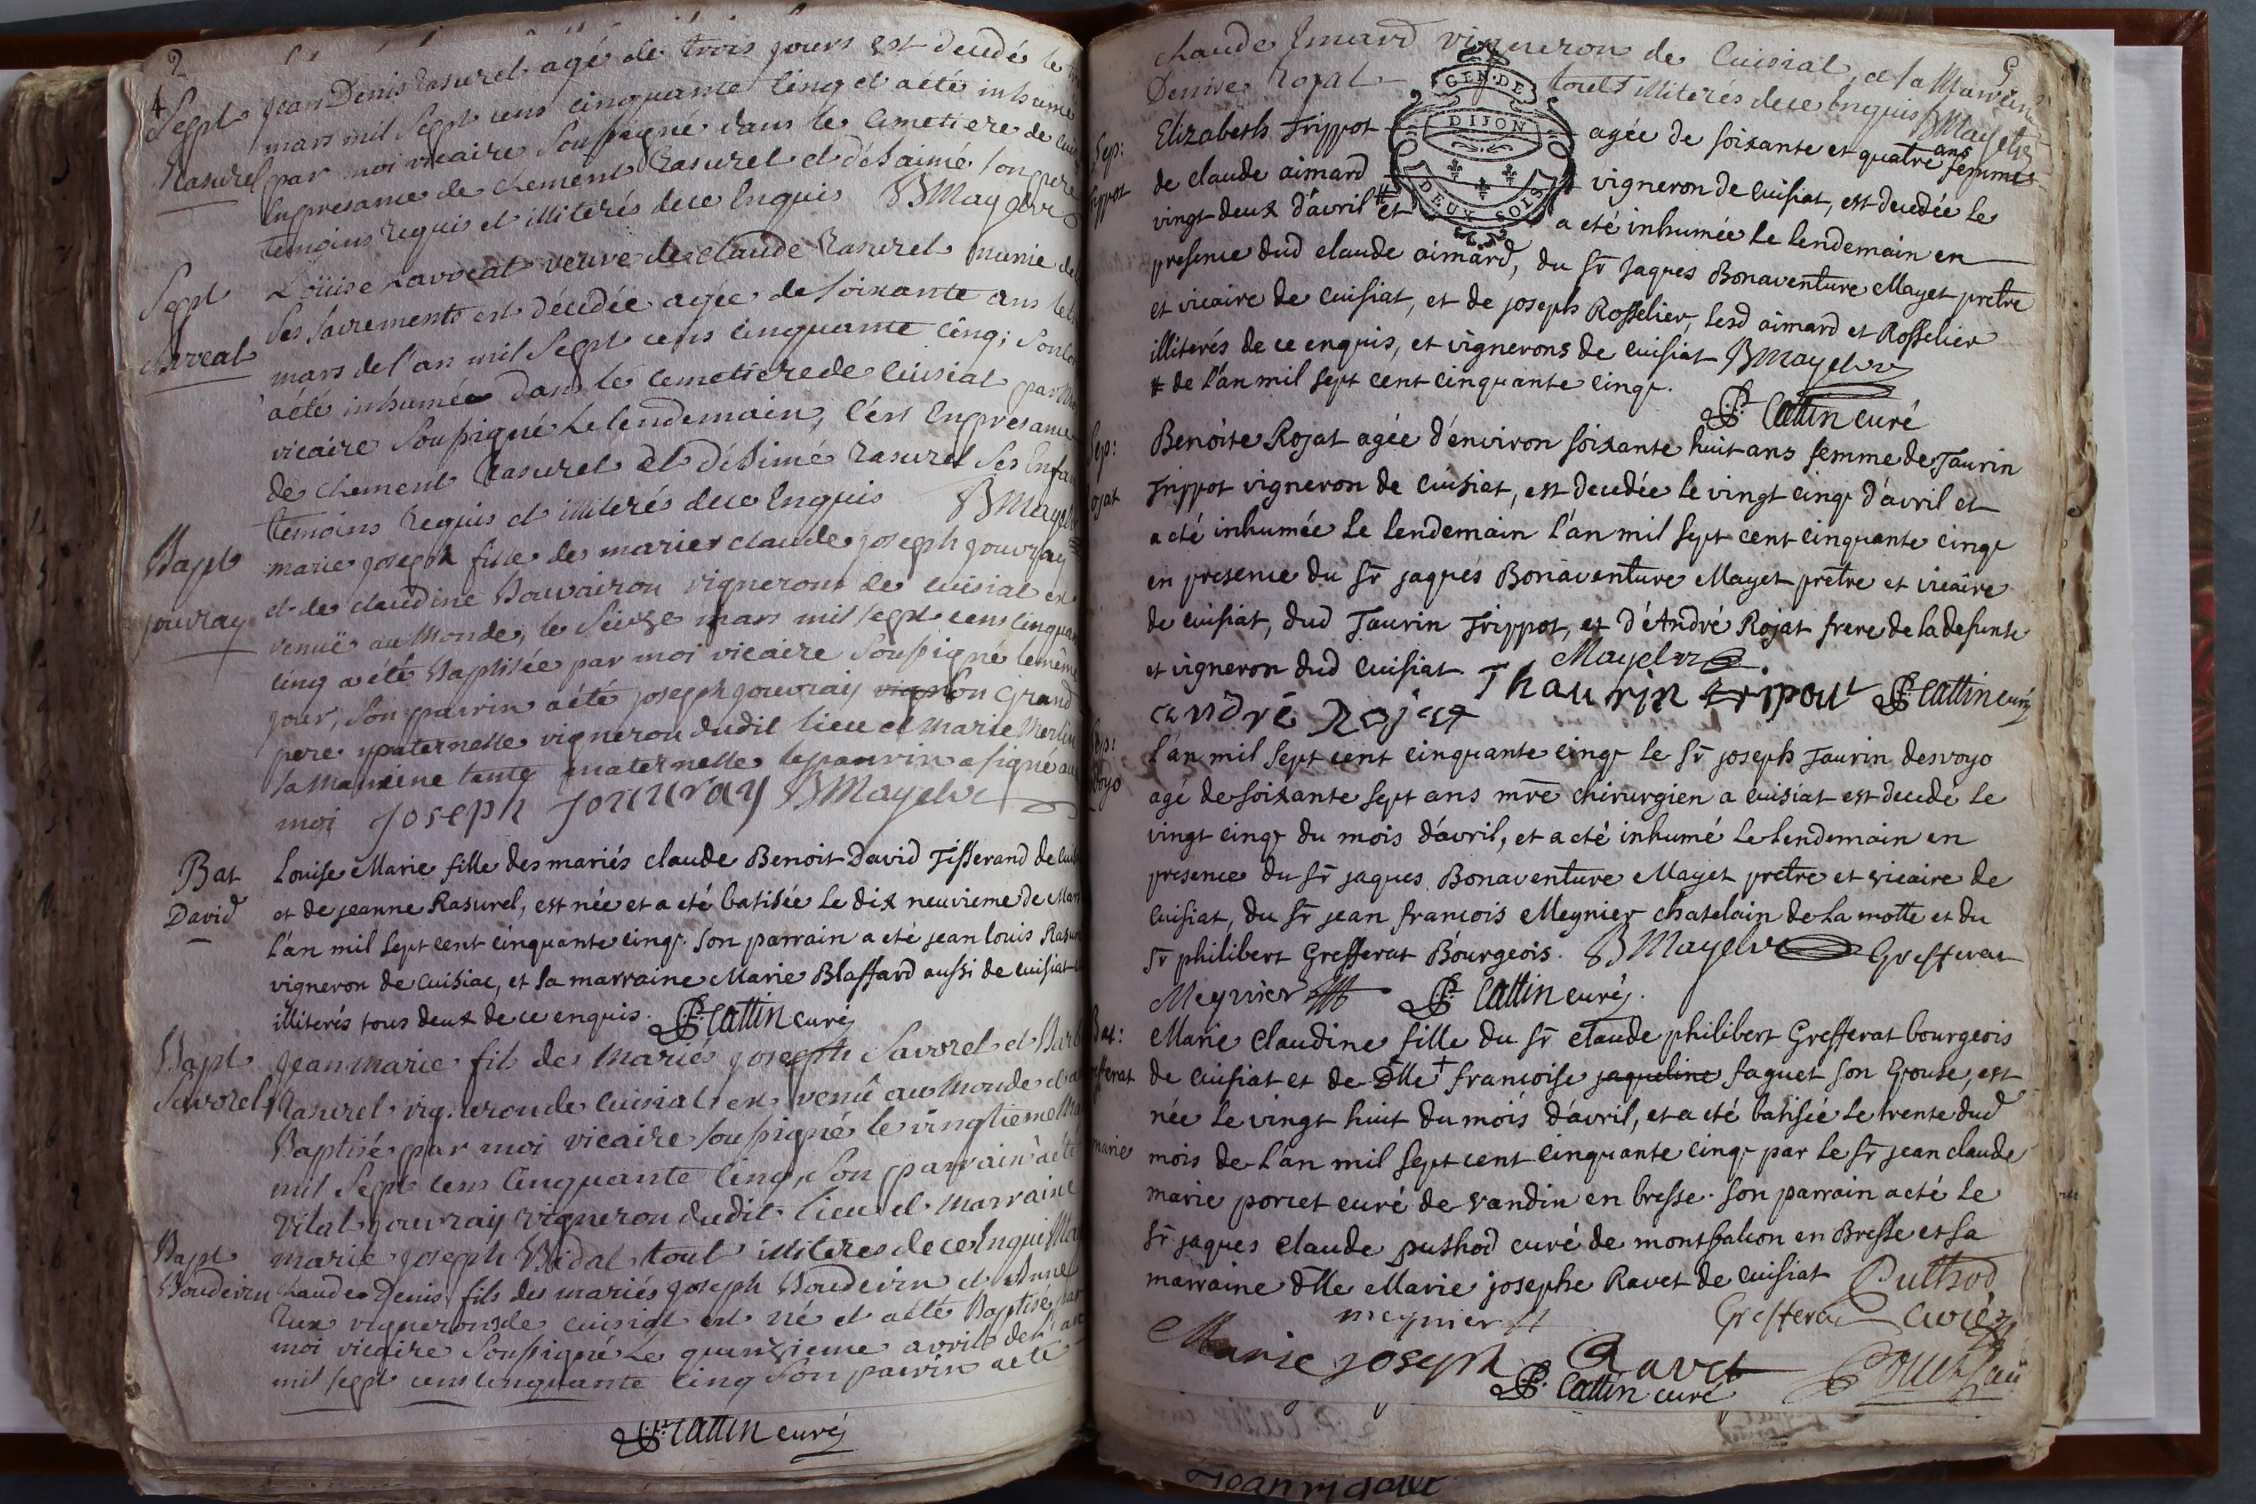 2
4
Sept
Rasurel
jean Denis Rasurel agé de trois jours est decedé le
mars mil Sept cens cinquante cinq et a été inhumé
par moi vicaire Soussigné dans le Cimetiere de
En presance de Clement Rasurel et désaimé son pere
temoins requis et illiterés de ce Enquis BMayet vre
Sept
Lavocat
Loüise Lavocat veuve de Claude Rasurel munie de
Ses Sacrements est décédée agée de soixante ans le
mars de l'an mil Sept cens cinquante cinq; Son
a été inhumée dans le cemetiere de Cuisiat par
vicaire Soussigné Le lendemain, C'est En presance
de Clement Rasurel et Désimé Rasurel Ses Enfa
temoins Requis et illiterés de ce Enquis BMayet
Bapt
jouvray
marie joseph fille des mariés claude joseph jouvray
et de claudine Bouvairon vignerons de cuisiat est
venuë au Monde, le Seize mars mil sept cens cinquan
cinq a été Baptisée par moi vicaire Soussigné le même
jour, Son parrin a été joseph jouvray vign Son Grand
pere paternelle vigneron dudit lieu et Marie Merlin
sa Marrine tante maternelle le parrin a signé avec
moi joseph jouvray BMayet vre
Bat
David
Louise Marie fille des mariés claude Benoit David Tisserand de Cuis
et de jeanne Rasurel, est née et a eté batisée Le dix neuvieme de Mars
L'an mil sept cent cinquante cinq. son parrain a eté jean Louis Rasur
vigneron de cuisiac, et sa marraine Marie Blassard aussi de cuisiat
illiterés tous deux de ce enquis. P. Cattin curé
Bapt
Savorel
jean marie fils des Mariés joseph Savorel et Barb
Rasurel vigneron de Cuisiat est venû au Monde et a
Baptisé par moi vicaire soussigné le vingtieme
mil Sept cens Cinquante cinq, Son parrain a été
Vital jouvray vigneron dudit lieu et Marraine
marie joseph Vidal tout illiteres de ce Enquis
Bapt
Boudevin
Claude Denis fils des mariés joseph Boudevin et Anne
Rux vigneron de cuisiat est né et a été Baptisé par
moi vicaire Soussigné Le quinzieme avril de l'an
mil sept cens cinquante cinq Son parrin a été
P. Cattin curé
claude Emard vigneron de Cuisiat, et sa Marrine
Denise Rojat touts illiterés de ce Enquis BMayet vre
GEN. DE
DIJON
DEUX SOLS
Sep:
Trippot
Elizabeth Trippot agée de soixante et quatre ans femme
de claude aimard vigneron de Cuisiat, est decedée Le
vingt deux d'avril # et a eté inhumée Le Lendemain en
presence dud claude aimard, du Sr Jaques Bonaventure Mayet pretre
et vicaire de cuisiat, et de joseph Rosselier, Lesd aimard et Rosselier
illiterés de ce enquis, et vignerons de cuisiat BMayet vre
# de L'an mil sept cent cinquante cinq.
P. Cattin curé
Sep:
Rojat
Benoite Rojat agée d'environ soixante huit ans femme de Taurin
Trippot vigneron de cuisiat, est decedée Le vingt cinq d'avril et
a eté inhumée Le Lendemain L'an mil sept cent cinquante cinq
en presence du Sr jaques Bonaventure Mayet pretre et vicaire
de cuisiat, dud Taurin Trippot, et d'André Rojat frere de la defunte
et vigneron dud cuisiat Mayet vre
Thaurin tripout P. Cattin curé
andré Rojat
Sep:
L'an mil sept cent cinquante cinq Le Sr joseph Taurin desvoyo
agé de soixante sept ans mre chirurgien a cuisiat est decedé Le
vingt cinq du mois d'avril, et a eté inhumé Le Lendemain en
presence du Sr jaques Bonaventure Mayet pretre et vicaire de
cuisiat, du Sr jean francois Meynier chatelain de La motte et du
Sr philibert Grefferat Bourgeois. BMayet vre Grefferat
Meynier P. Cattin curé.
Bat:
Grefferat
marie
Marie Claudine fille du Sr claude philibert Grefferat bourgeois
de cuisiat et de Dlle † francoise jaqueline faguet son Epouse, est
née Le vingt huit du mois d'avril, et a eté batisée Le trente dud
mois de L'an mil sept cent cinquante cinq par Le Sr jean claude
marie porcet curé de vandin en bresse. son parrain a eté Le
Sr jaques claude puthod curé de montfalcon en Bresse et sa
marraine dlle Marie josephe Ravet de cuisiat Puthod
meynier Grefferat curé
Marie joseph Ravet
P. Cattin curé